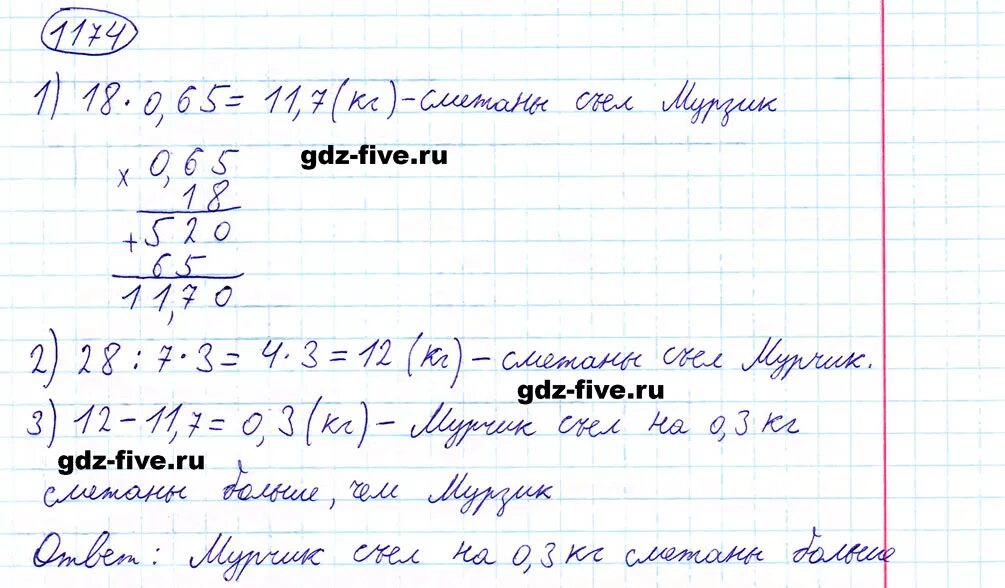 1174
1) 18 · 0,65 = 11,7 (кг) – сметаны съел Мурзик
gdz-five.ru
× 0,65
18
+ 520
65
11,70
2) 28 : 7 · 3 = 4 · 3 = 12 (кг) – сметаны съел Мурчик.
gdz-five.ru
3) 12 – 11,7 = 0,3 (кг) – Мурчик съел на 0,3 кг
gdz-five.ru
сметаны больше, чем Мурзик
Ответ: Мурчик съел на 0,3 кг сметаны больше